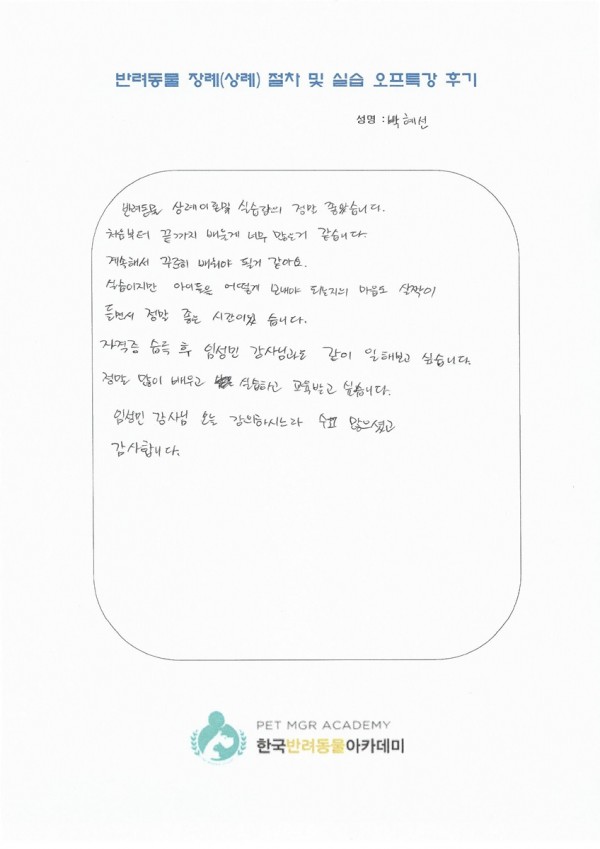 반려동물 장례(상례) 절차 및 실습 오프특강 후기
성명 : 박혜선
반려동물 상례이론및 실습강의 정말 좋았습니다.
처음부터 끝까지 배울게 너무 많은거 같습니다.
계속해서 꾸준히 배워야 될거 같아요.
실습이지만 아이들은 어떻게 보내야 되는지의 마음도 살짝이
들면서 정말 좋은 시간이었 습니다.
자격증 습득 후 임성민 강사님과도 같이 일해보고 싶습니다.
정말로 많이 배우고 실습하고 교육받고 싶습니다.
임성민 강사님 오늘 강의하시느라 수고 많으셨고
감사합니다.
PET MGR ACADEMY
한국반려동물아카데미